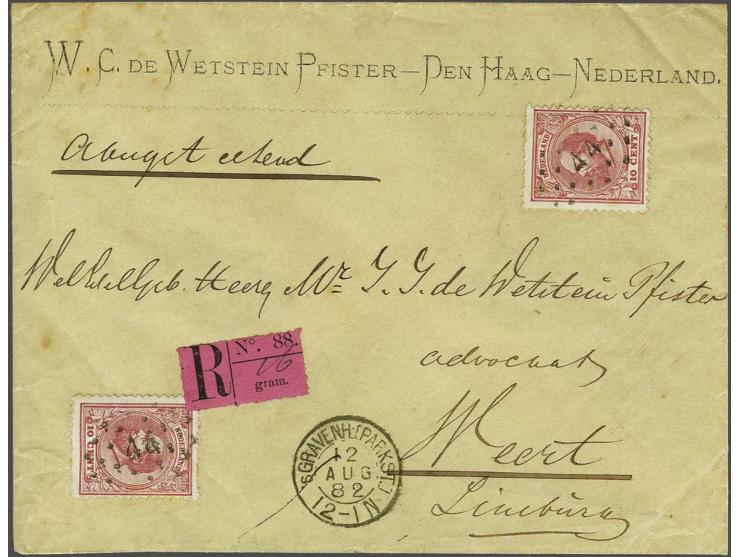 W. C. DE WETSTEIN PFISTER—DEN HAAG—NEDERLAND.
Aangeteekend
NEDERLAND
10 CENT
44
WelEdelGeb. Heer Mr. J. J. de Wetstein Pfister
advocaat
R
No. 88.
16
gram.
Weert
Limburg
10 CENT
NEDERLAND
44
'SGRAVENH.(PARKST.)
12
AUG
82
12-1N